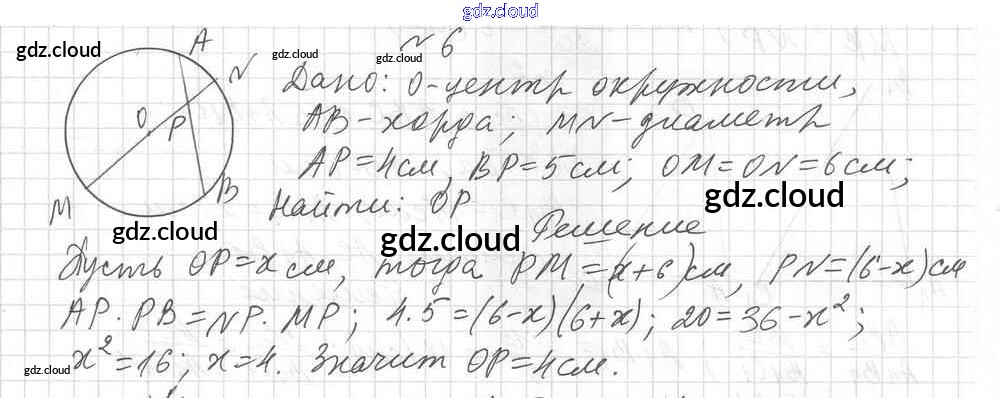 gdz.cloud
gdz.cloud
gdz.cloud
gdz.cloud
№ 6
A
N
O
P
M
B
Дано: O-центр окружности,
AB-хорда; MN-диаметр
AP=4см, BP=5см; OM=ON=6см;
gdz.cloud
Найти: OP
gdz.cloud
gdz.cloud
Решение
Пусть OP=x см, тогда PM=(x+6)см, PN=(6-x)см
AP·PB=NP·MP; 4.5=(6-x)(6+x); 20=36-x²;
x²=16; x=4. Значит OP=4см.
gdz.cloud
gdz.cloud